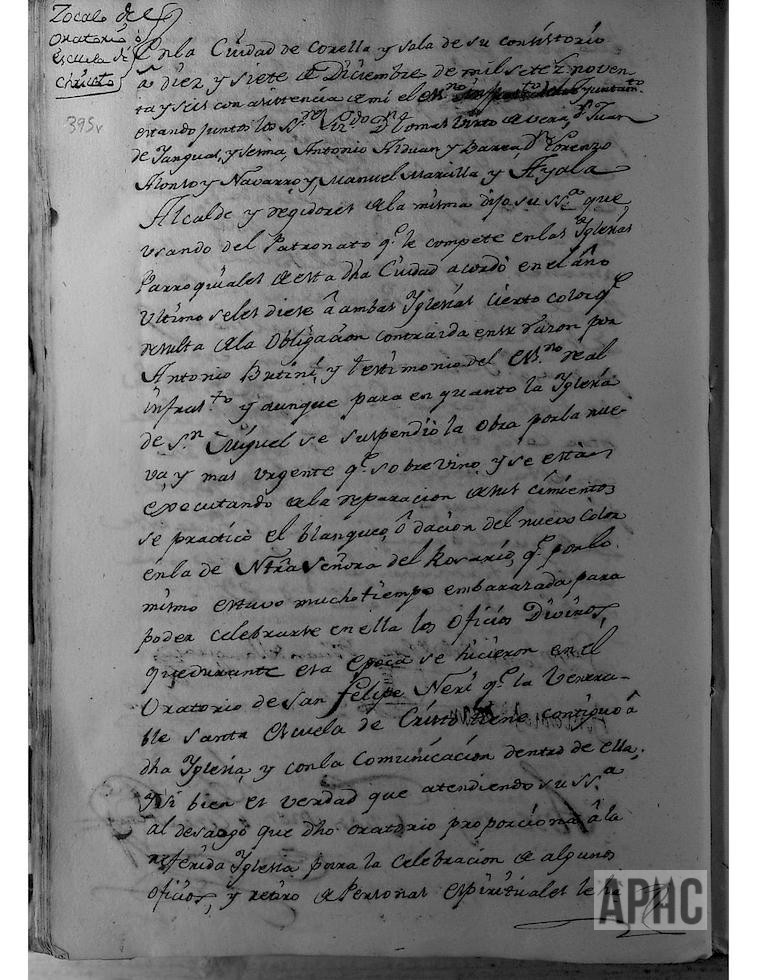 Zocalo del
Oratorio
Escuela de
Christo
395v
En la Ciudad de Corella y sala de su consistorio
a diez y siete de Diciembre de mil setez.s noven-
ta y seis con asistencia de mi el
estando juntos los S.res Liz.do D.n Tomas de Vera, D.n Juan
de Sanguas, y Sesma, Antonio Alduan y Barra, D.n Lorenzo
Alonso y Navarro y Manuel Marcilla y Ayala
Alcalde y regidores de la misma dijo su SS.a que
usando del Patronato q.e le compete en las Iglesias
Parroquiales de esta dha Ciudad acordó en el año
ultimo se les diese â ambas Iglesias cierto color q.e
resulta de la Obligacion contraida en su razon por
Antonio Brini, y testimonio del Es.no real
infras.to y aunque para en quanto la Iglesia
de S.n Miguel se suspendio la obra por la nue-
va, y mas urgente q.e sobrevino, y se está
executando de la reparacion de sus cimientos
se practicó el blanqueo, ô dacion del nuevo Color
en la de Ntra Señora del Rosario, q.e por lo
mismo estuvo mucho tiempo embarazada para
poder celebrarse en ella los Oficios Divinos,
que durante esta epoca se hicieron en el
Oratorio de San Felipe Neri q.e la Venera-
ble Santa Escuela de Cristo tiene contiguo â
dha Iglesia, y con la Comunicacion dentro de ella;
y si bien es verdad que atendiendo su SS.a
al desaogo que dho oratorio proporciona â la
referida Iglesia para la celebracion de algunos
oficios, y retiro de Personas espirituales le ha
APHC